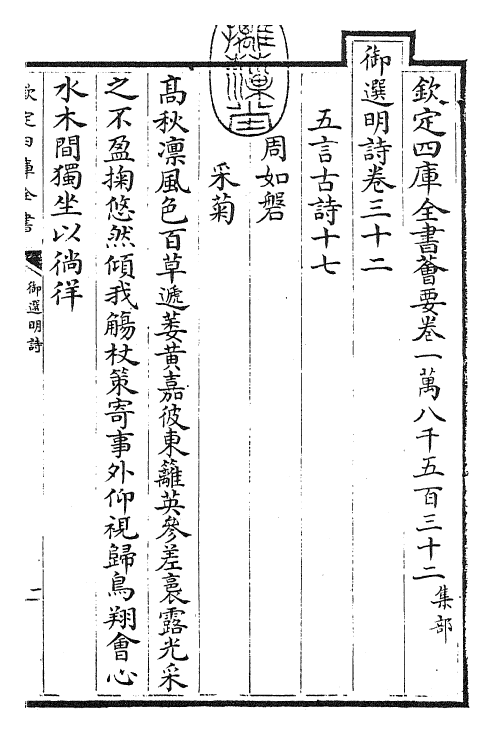 欽定四庫全書薈要卷一萬八千五百三十二 集部
御選明詩卷三十二
五言古詩十七
周如磐
采菊
高秋凛風色百草遞萎黄嘉彼東籬英參差裛露光采
之不盈掬悠然傾我觴杖策寄事外仰視歸鳥翔會心
水木間獨坐以徜徉
欽定四庫全書
御選明詩